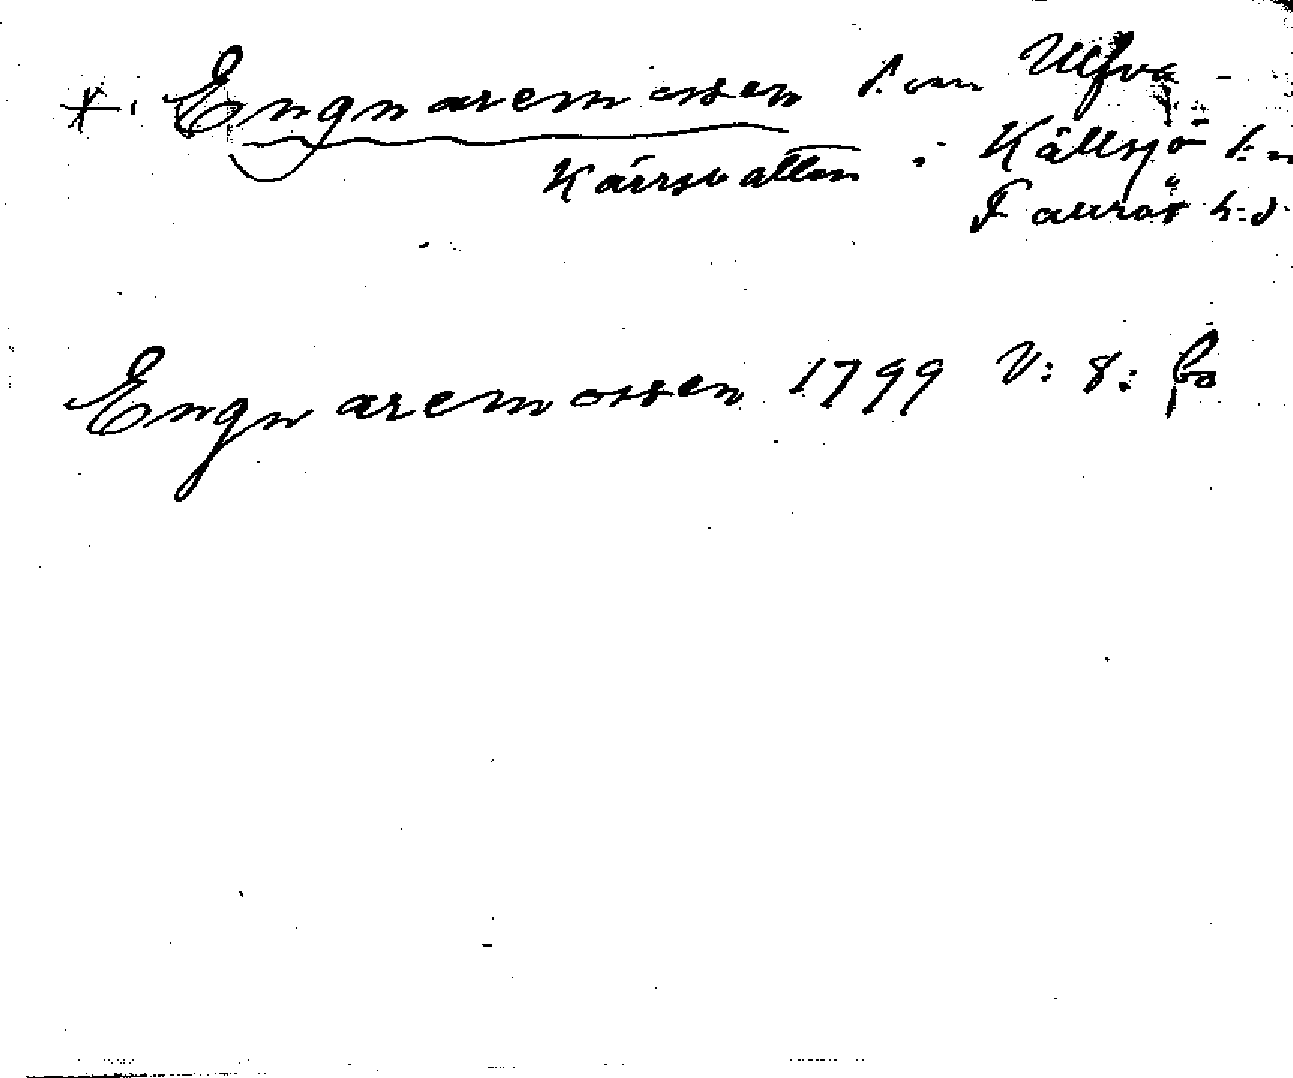 +. Engnaremossen l. om Ulfva
Kärrvatten i Källsjö s:n
Faurås h:d
Engnaremossen 1799 V: 8: fo